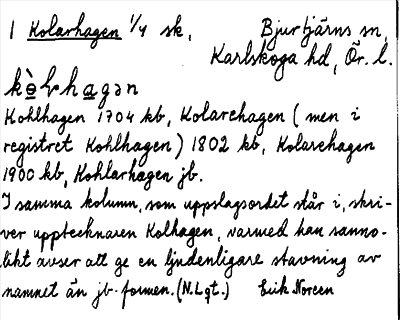 1 Kolarhagen 1/4 sk,
Bjurtjärns sn,
Karlskoga hd, Ör. l.
kò̱lha̱gən
Kohlhagen 1704 kb, Kolarehagen (men i
registret Kohlhagen) 1802 kb, Kolarehagen
1900 kb, Kohlarhagen jb.
I samma kolumn, som uppslagsordet står i, skri-
ver upptecknaren Kolhagen, varmed han sanno-
likt avser att ge en ljudenligare stavning av
namnet än jb-formen. (N.Lgt.) Erik Noreen